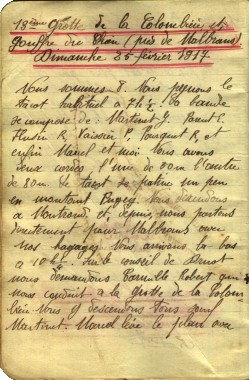 19ème grotte de la Colombière et
gouffre du Chan (près de Malbrans)
Dimanche 25 février 1917.
Nous sommes 8. Nous prenons le
tacot habituel à 7h ½. La bande
se compose de: Martinet J.
P. R. et
enfin Marcel et moi. Nous avons
deux cordes l'une de 50m l'autre
de 80m. Le tacot se patine un peu
en montant Pugey. Nous descendons
à Montrond et, depuis, nous partons
directement pour Malbrans avec
nos bagages. Nous arrivons là bas
à 10h ½. Sur le conseil de
nous demandons Camille Robert qui
nous conduit à la grotte de la Colom-
bière. Nous y descendons tous sauf
Martinet. Marcel lève le plan avec